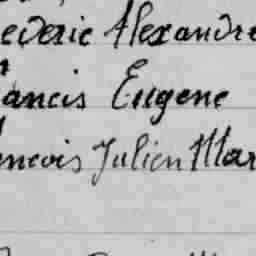 ederic Alexandre
rancis Eugene
encois Julien Mar